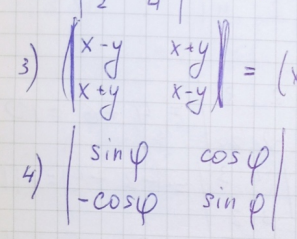 2 4
3) | x-y x+y |
| x+y x-y | = (x
4) | sin φ cos φ |
| -cos φ sin φ |